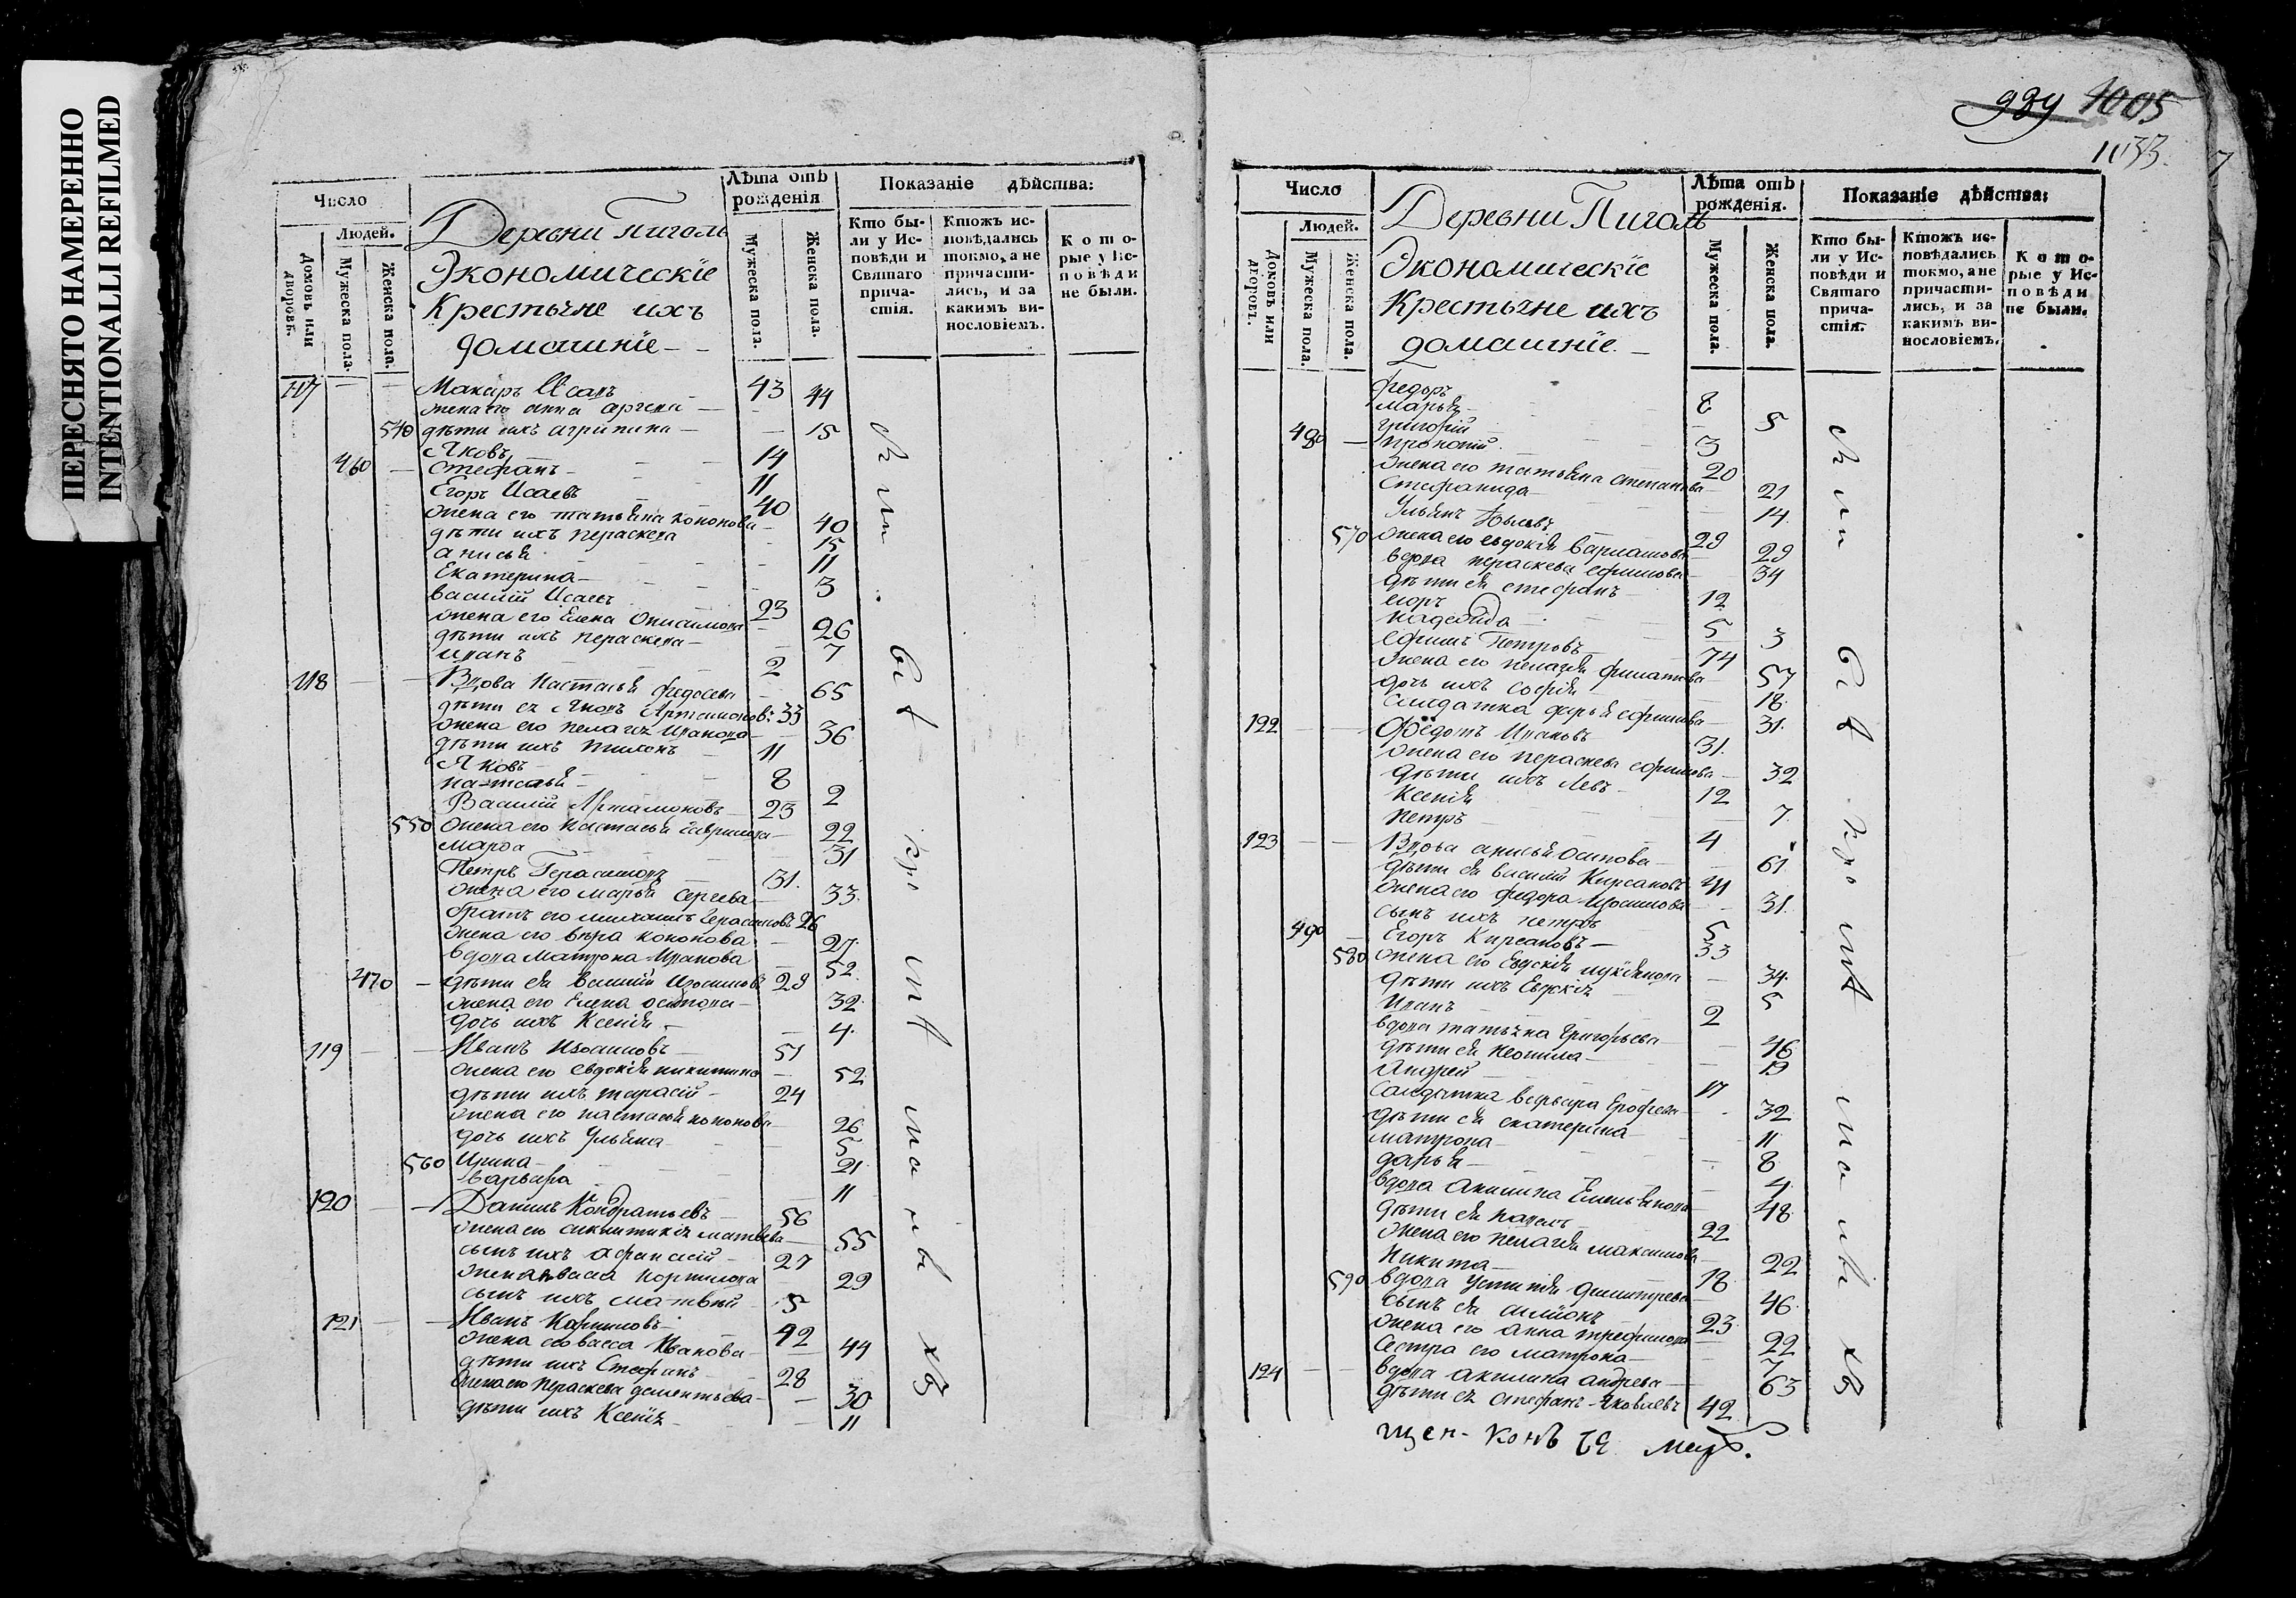 ПЕРЕСНЯТО НАМЕРЕННО
INTENTIONALLI REFILMED
Число
Людей.
Домовъ или дворовъ.
Мужеска пола.
Женска пола.
Деревни Пиголь
Экономическіе
Крестьяне ихъ
домашніе
Лѣта отъ рожденія
Мужеска пола.
Женска пола.
Показаніе дѣйства:
Кто бы-
ли у Ис-
повѣди и
Святаго
прича-
стія.
Ктожъ ис-
повѣдались
токмо, а не
причасти-
лись, и за
какимъ ви-
нословіемъ.
К о т о-
рые у Ис-
п о в ѣ д и
не были.
117 Макаръ Исаевъ 43
жена его анна 44
540 дѣти ихъ агрипина 15
Яковъ 14
460 Стефанъ 11
Егоръ Исаевъ 40
жена его татьяна кононова 40
дѣти ихъ пераскева 15
анисья 11
Екатерина 3
василій Исаевъ 23
жена его Елена Онисимова 26
дѣти ихъ пераскева 7
иванъ 2
118 Вдова Настасья федосева 65
дѣти ея Яковъ Артамоновъ 33
жена его пелагея иванова 36
дѣти ихъ тихонъ 11
Яковъ 8
настасья 2
Василій Артамоновъ 23
550 жена его настасья гаврилова 22
марфа 31
Петръ Герасимовъ 31.
жена его марья Сергева 33.
братъ его михаилъ герасимовъ 26
жена его вѣра кононова 27.
вдова матрона иванова 52.
470 дѣти ея василій Изосимовъ 29
жена его Елена осипова 32.
дочь ихъ Ксенія 4.
119 Иванъ Изосимовъ 51
жена его евдокія никитина 52.
дѣти ихъ тарасій 24
жена его настасья кононова 26
дочь ихъ Ульяна 5
560 Ирина 21
варвара 11
120 Данилъ Кондратьевъ 56
жена его матвева 55
сынъ ихъ афанасій 27
жена васса корнилова 29
сынъ ихъ матвѣй 5
121 Иванъ Корниловъ 42
жена его васса Иванова 44
дѣти ихъ Стефанъ 28
жена его пераскева дементьева 30
дѣти ихъ Ксенія 11
1005
1033.
Число
Людей.
Домовъ или дворовъ.
Мужеска пола.
Женска пола.
Деревни Пиголь
Экономическіе
Крестьяне ихъ
домашніе
Лѣта отъ рожденія.
Мужеска пола.
Женска пола.
Показаніе дѣйства:
Кто бы-
ли у Ис-
повѣди и
Святаго
прича-
стія.
Ктожъ ис-
повѣдались
токмо, а не
причасти-
лись, и за
какимъ ви-
нословіемъ.
К о т о-
рые у Ис-
п о в ѣ д и
не были.
федоръ 8
марья 5
480 григорій 3
прокопій 20
жена его татьяна степанова 21
Стефанида 14
Ульянъ 29
570 жена его евдокія 29
вдова пераскева ефимова 34
дѣти ея стефанъ 12
егоръ 5
надежда 3
ефимъ Петровъ 74
жена его пелагея филатова 57
дочь ихъ софія 18
салдатка дарья ефимова 31.
122 Федотъ Ивановъ 31.
жена его пераскева ефимова 32
дѣти ихъ Левъ 12
Ксенія 7.
петръ 4
123 Вдова анисья осипова 61
дѣти ея василій Кирсановъ
жена его федора Изосимова 31.
сынъ ихъ петръ 5
490 Егоръ Кирсановъ 33
580 жена его Евдокія лукіянова 34.
дѣти ихъ Евдокія 5
Иванъ 2
вдова татьяна григорьева 46
дѣти ея неонила 19
Андрей 17
Салдатка варвара Ерофева 32
дѣти ея екатерина 11
матрона 8
дарья 4.
вдова Акилина Емельянова 48
дѣти ея павелъ 22
жена его пелагея максимова 22
никита 18
590 вдова устинія димитрева 46.
сынъ ея симіонъ 23
жена его анна трефилова 22
сестра его матрона 7
124 вдова акилина андрева 63
дѣти ея стефанъ Яковлевъ 42